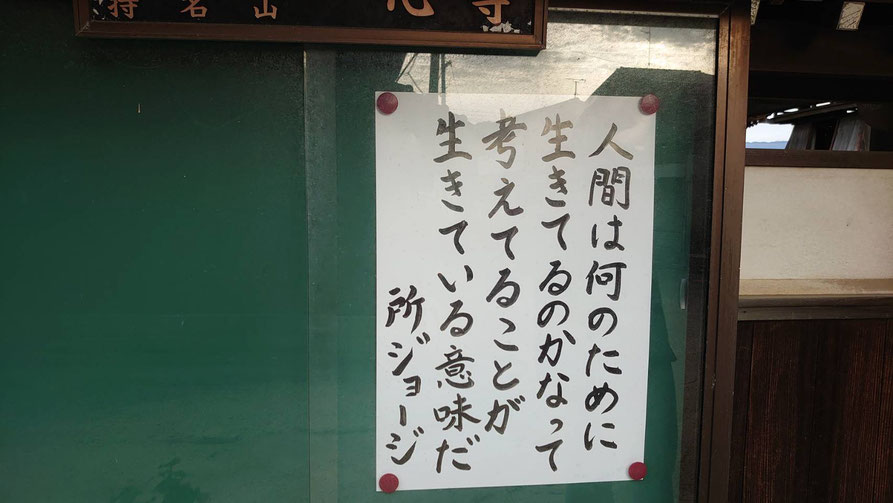 持名山
寺
人間は何のために
生きてるのかなって
考えてることが
生きている意味だ
所ジョージ